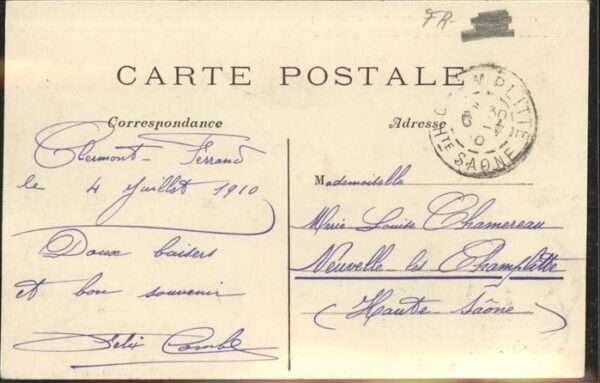 FR-
CARTE POSTALE
Correspondance
Adresse
CHAMPLITTE
HTE SAÔNE
Clermont-Ferrand
le 4 Juillet 1910
Doux baisers
et bon souvenir
Felix
Mademoiselle
Marie Louise Chamereau
Neuvelle les Champlitte
(Haute Saône)